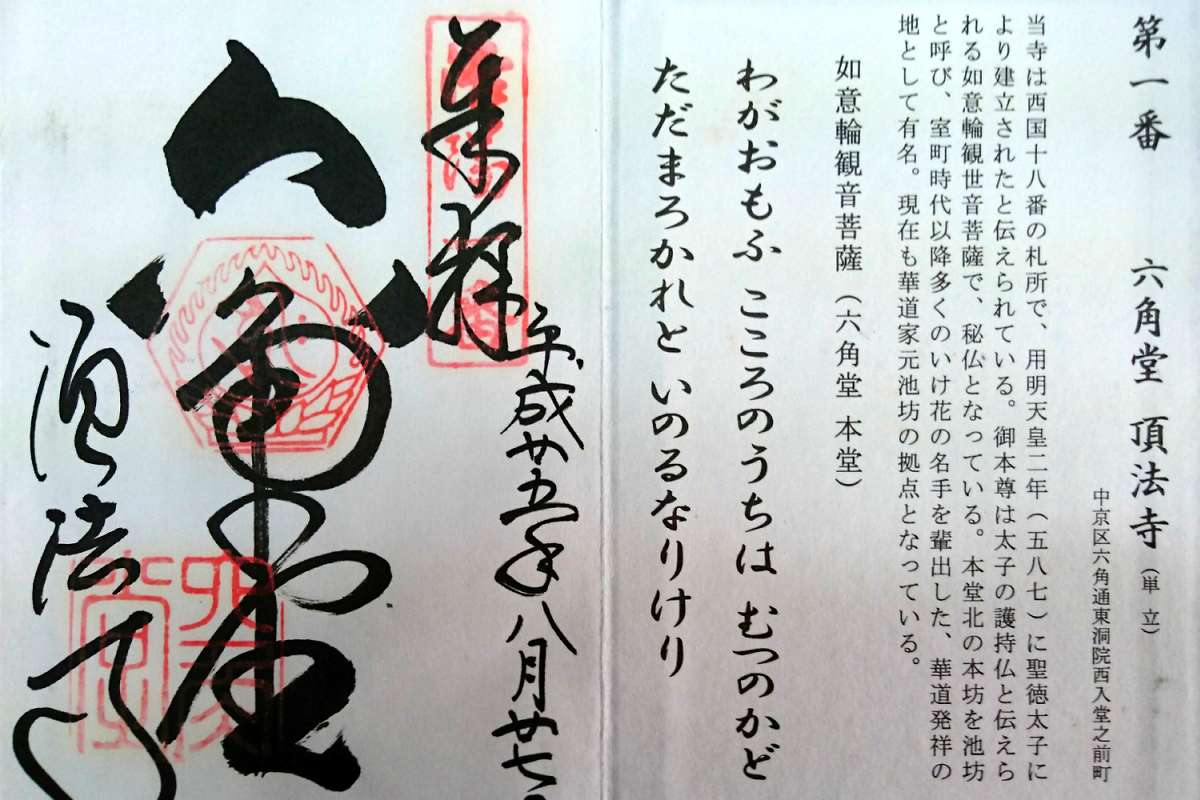 第一番 六角堂 頂法寺（単立）
中京区六角通東洞院西入堂之前町
当寺は西国十八番の札所で、用明天皇二年（五八七）に聖徳太子に
より建立されたと伝えられている。御本尊は太子の護持仏と伝えら
れる如意輪観世音菩薩で、秘仏となっている。本堂北の本坊を池坊
と呼び、室町時代以降多くのいけ花の名手を輩出した、華道発祥の
地として有名。現在も華道家元池坊の拠点となっている。
如意輪観音菩薩（六角堂 本堂）
わがおもふ こころのうちは むつのかど
ただまろかれと いのるなりけり
平成廿五年八月廿七
奉拝
六角堂
頂法寺